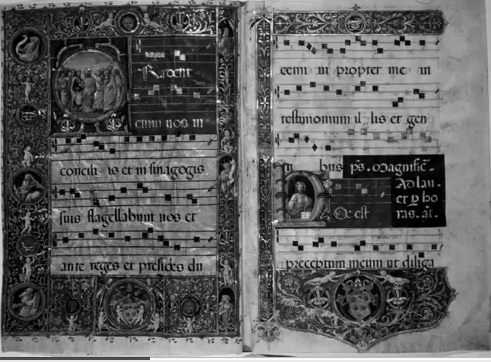 Tradent
enim vos in
concili is et in sinagogis
suis flagellabunt vos et
ante reges et presides du
cemi ni propter me in
testimonium il lis et gen
bus ps. Magnific̄.
Ad lau.
et p ho
ras. añ.
Hoc est
preceptum meum ut diliga